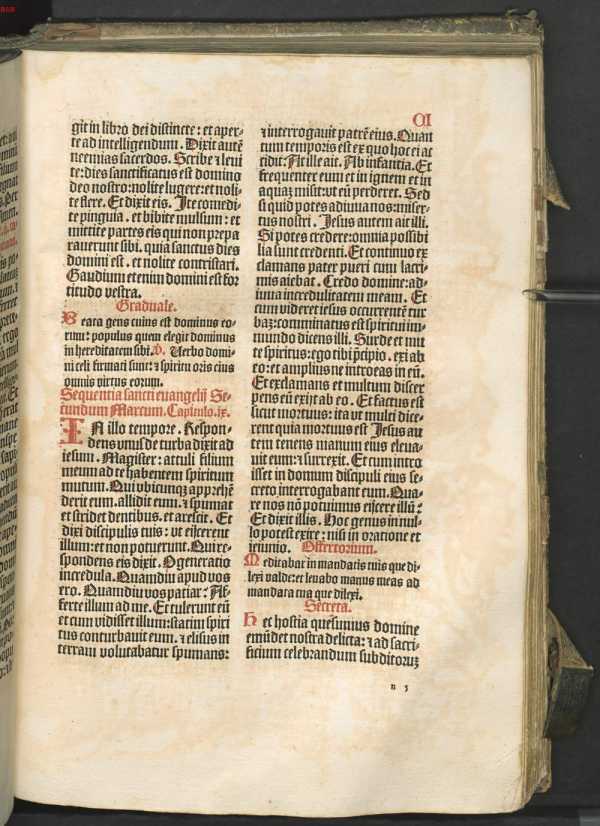 CI
git in libro dei distincte: et aper-
te ad intelligendum. Dixit autē
neemias sacerdos. Scribe ⁊ leui
te: dies sanctificatus est domino
deo nostro: nolite lugere: et noli-
te flere. Et dixit eis. Ite comedi-
te pinguia. et bibite mulsum: et
mittite partes eis qui non prepa
rauerunt sibi. quia sanctus dies
domini est. et nolite contristari.
Gaudium etenim domini est for
titudo vestra.
Graduale.
Beata gens cuius est dominus eo-
rum: populus quem elegit dominus
in hereditatem sibi. V. Verbo domi-
ni celi firmati sunt: ⁊ spiritu oris eius
omnis virtus eorum.
Sequentia sancti euangelij Se-
cundum Marcum. Capitulo. ix.
IN illo tempore. Respon-
dens vnus de turba dixit ad
iesum. Magister: attuli filium
meum ad te habentem spiritum
mutum. Qui vbicunqȝ apprehē
derit eum. allidit eum. ⁊ spumat
et stridet dentibus. et arescit. Et
dixi discipulis tuis: vt eijcerent
illum: et non potuerunt. Qui re-
spondens eis dixit. O generatio
incredula. Quamdiu apud vos
ero. Quamdiu vos patiar: Af-
ferte illum ad me. Et tulerunt eū
et cum vidisset illum: statim spiri
tus conturbauit eum. ⁊ elisus in
terram volutabatur spumans:
⁊ interrogauit patrē eius. Quan
tum temporis est ex quo hoc ei ac
cidit: At ille ait. Ab infantia. Et
frequenter eum et in ignem et in
aquaȝ misit: vt eū perderet. Sed
si quid potes adiuua nos: miser-
tus nostri. Jesus autem ait illi.
Si potes credere: omnia possibi
lia sunt credenti. Et continuo ex
clamans pater pueri cum lacri-
mis aiebat. Credo domine: ad-
iuua incredulitatem meam. Et
cum videret iesus occurrentē tur
baȝ: comminatus est spiritui im-
mundo dicens illi. Surde et mu
te spiritus: ego tibi p̄cipio. exi ab
eo: et amplius ne introeas in eū.
Et exclamans et multum discer
pens eū exijt ab eo. Et factus est
sicut mortuus: ita vt multi dice-
rent quia mortuus est Jesus au
tem tenens manum eius eleua-
uit eum: ⁊ surrexit. Et cum intro
isset in domum discipuli eius se-
creto interrogabant eum. Qua-
re nos nō potuimus eijcere illū:
Et dixit illis. Hoc genus in nul-
lo potest exire: nisi in oratione et
ieiunio. Offertorium.
Meditabar in mandatis tuis que di-
lexi valde: et leuabo manus meas ad
mandata tua que dilexi.
Secreta.
Hec hostia quesumus domine
emūdet nostra delicta: ⁊ ad sacri-
ficium celebrandum subditoruȝ
n 5